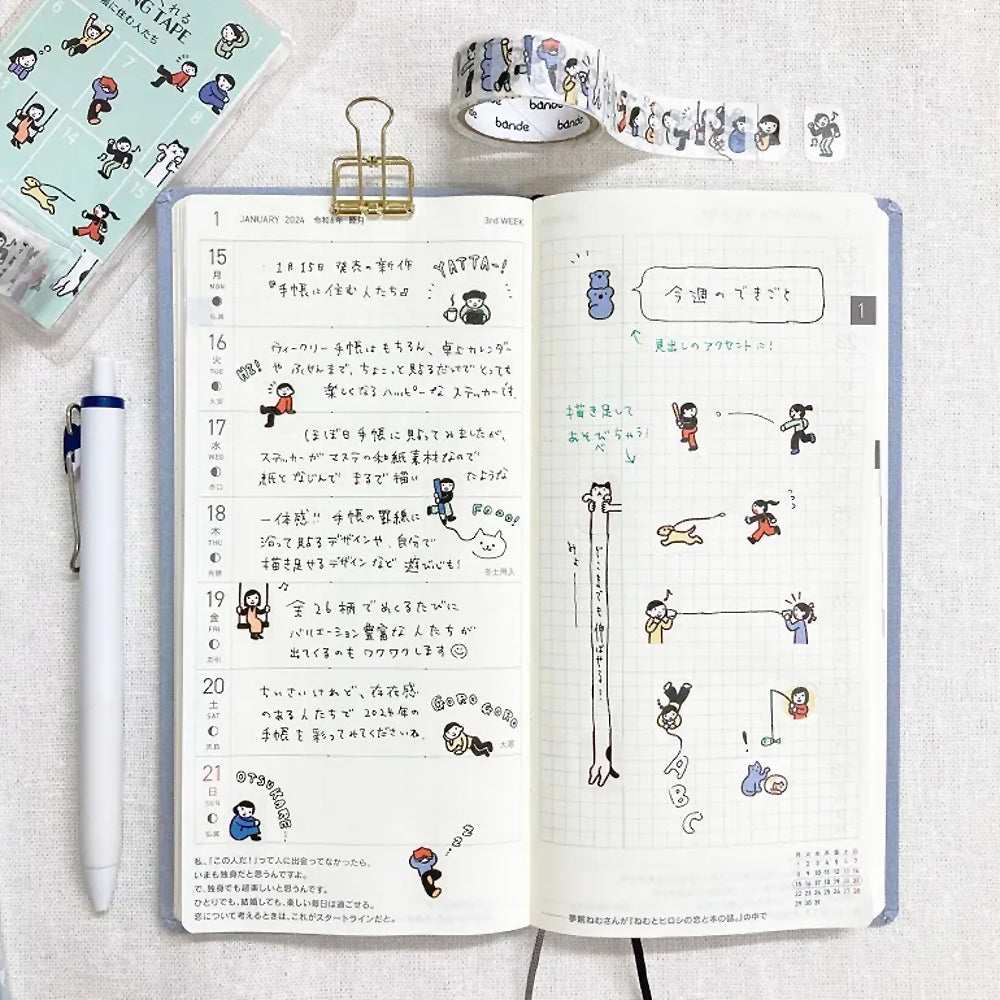 くれる
NG TAPE
帳に住む人たち
6
1
7
8
14
15
bande
bande
bande
de
1 JANUARY 2024 令和6年 睦月
3rd WEEK
15
月
MON
仏滅
1月15日 発売の新作
『手帳に住む人たち』
YATTA〜!
16
火
TUE
大安
ウィークリー手帳はもちろん、卓上カレンダー
や ふせんまで、ちょこっと貼るだけでとっても
楽しくなるハッピーな ステッカーです。
HE!
17
水
WED
赤口
ほぼ日手帳に貼ってみましたが、
ステッカーがマステの和紙素材なので
紙となじんで まるで描い たような
18
木
THU
先勝
一体感!! 手帳の罫線に
沿って貼るデザインや、自分で
描き足せるデザインなど 遊び心も!
FOOO!
冬土用入
19
金
FRI
友引
♪
全26柄でめくるたびに
バリエーション豊富な人たちが
出てくるのもワクワクします
20
土
SAT
先負
ちいさいけれど、存在感
のある人たちで 2024年の
手帳を彩ってみてくださいね。
GORO GORO
大寒
21
日
SUN
仏滅
OTSUKARE...
zzz
私、「この人だ!」って人に出会ってなかったら、
いまも独身だと思うんですよ。
で、独身でも超楽しいと思うんです。
ひとりでも、結婚しても、楽しい毎日は過ごせる。
恋について考えるときは、これがスタートラインだと。
今週のできごと
1
見出しのアクセントに!
描き足して
あそびちゃう!
みょーーー
どこまでも伸ばせる...
♪
!
ABC
月 火 水 木 金 土 日
1 2 3 4 5 6 7
8 9 10 11 12 13 14
15 16 17 18 19 20 21
22 23 24 25 26 27 28
29 30 31
夢眠ねむさんが『ねむとヒロシの恋と本の話。』の中で